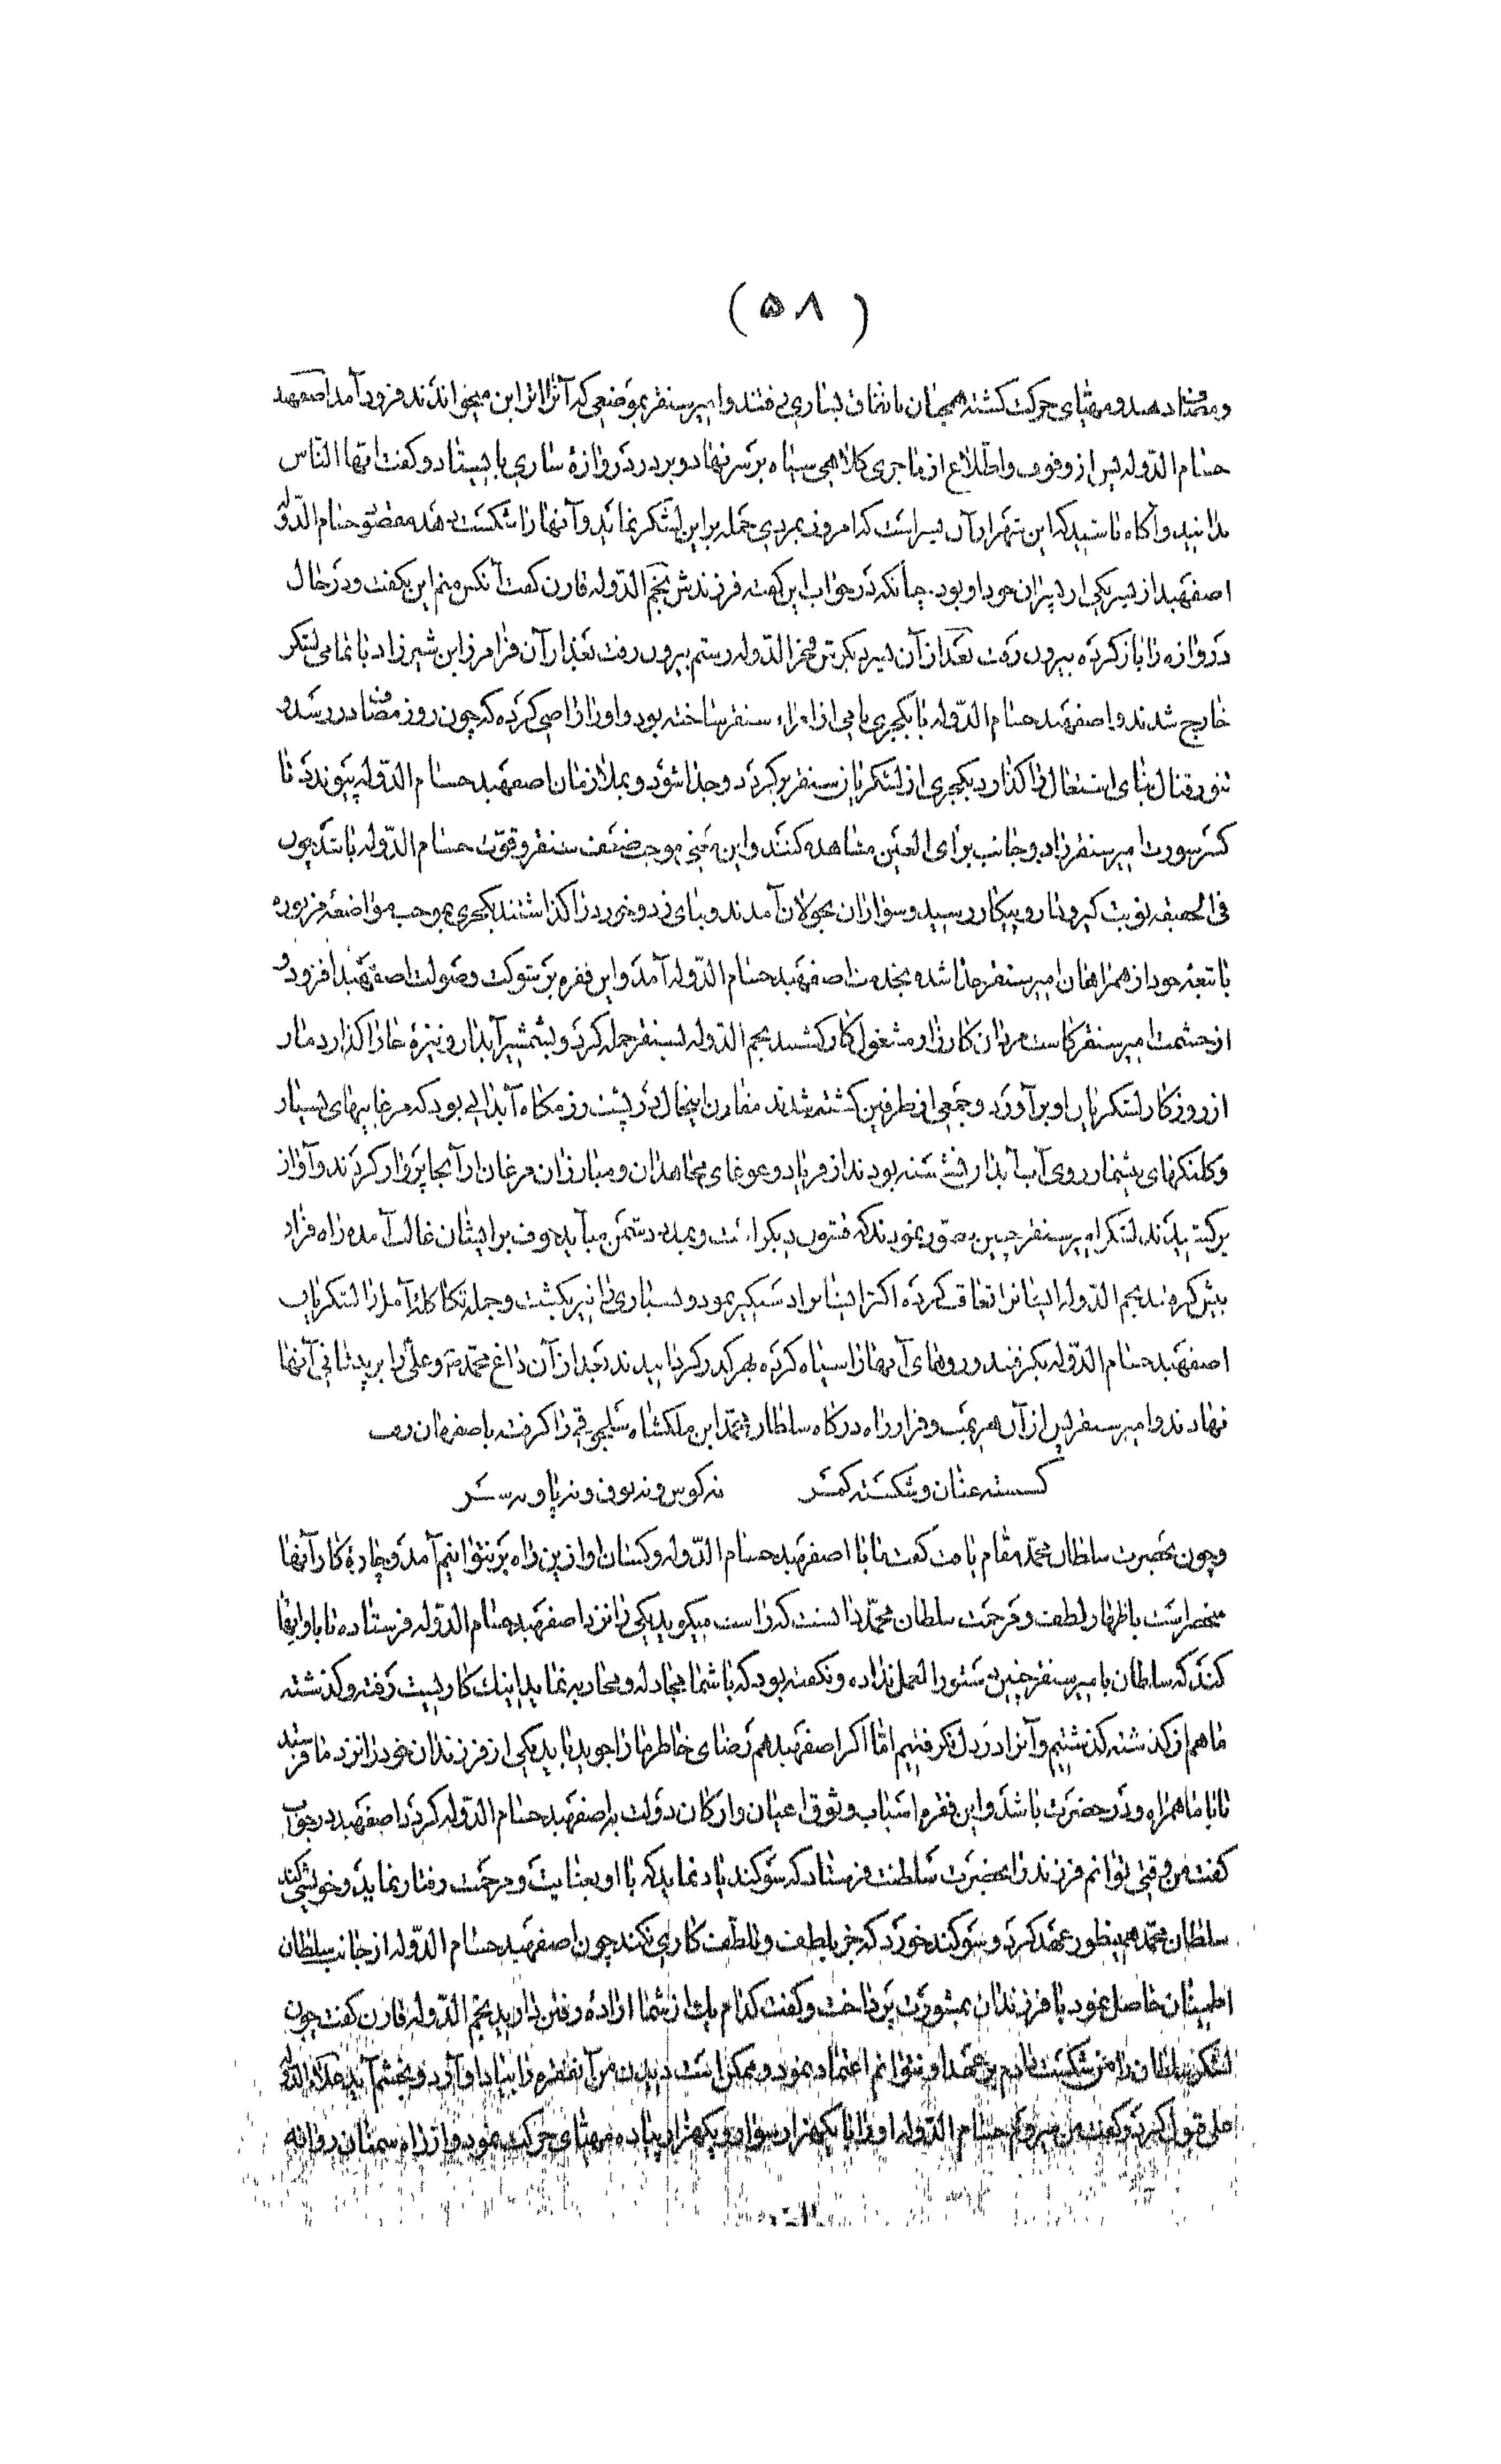 ( ۵۸ )
و مصاف دهد و مهیای حرکت گشته همچنان باتفاق بساری رفتند و امیر سنقر بموضعی که آنرا اترابن میخواندند فرود آمد اصفهبد
حسام الدوله پس از وقوف و اطلاع از ماجری کلاهی سیاه بر سر نهاد و بر در دروازهٔ ساری بایستاد و گفت ایها الناس
بدانید و آگاه باشید که این شهر از آن پسر است که امروز بمردی حمله بر این لشکر نماید و آنها را شکست دهد مقصود حسام الدوله
اصفهبد از پسر یکی از پسران خود او بود چنانکه در جواب این گفته فرزندش نجم الدوله قارن گفت آنکس منم این بگفت و در حال
دروازه را باز کرده بیرون رفت بعد از آن پسر دیگرش فخر الدوله رستم بیرون رفت بعد از آن فرامرز ابن شیرزاد با تمامی لشکر
خارج شدند و اصفهبد حسام الدوله با بکجری نامی از امراء سنقر ساخته بود و او را راضی کرده که چون روز مصاف در رسد و
تنور قتال بنای اشتعال را گذارد بکجری از لشکریان سنقر برگردد و جدا شود و بملازمان اصفهبد حسام الدوله پیوندد تا
کسر سورت امیر سنقر را دو جانب برای العین مشاهده کنند و این معنی موجب ضعف سنقر و قوت حسام الدوله باشد چون
فی الحقیقه نوبت گیرودار و پیکار رسید و سواران بجولان آمدند و بنای زد و خورد را گذاشتند بکجری بموجب مواضعهٔ مزبوره
با تبعهٔ خود از همراهان امیر سنقر جدا شده بخدمت اصفهبد حسام الدوله آمد و این فقره بر شوکت و صولت اصفهبد افزود و
از حشمت امیر سنقر کاست مردان کارزار مشغول کار گشتند نجم الدوله بسنقر حمله کرد و بشمشیر آبدار و نیزهٔ جانگذار دمار
از روزگار لشکریان او برآورد و جمعی از طرفین کشته شدند مقارن اینحال در پشت رزمگاه آبدانی بود که مرغابیهای بسیار
و کلنگهای بیشمار روی آب آبدان نشسته بودند از فریاد و غوغای مجاهدان و مبارزان مرغان از آنجا پرواز کردند و آواز
برکشیدند لشکر امیر سنقر چنین تصور نمودند که قشون دیگر است و بمدد دشمن میآید خوف بر ایشان غالب آمده راه فرار
پیش گرفتند نجم الدوله ایشانرا تعاقب کرده اکثر ایشانرا دستگیر نمود و بسیاری را نیز بکشت و جمله تکاکلهٔ آمل را لشکریان
اصفهبد حسام الدوله بگرفتند و رویهای آنها را سیاه کرده بهر گذر گردانیدند بعد از آن داغ محمد و علی را بر پیشانی آنها
نهادند و امیر سنقر پس از آن هزیمت و فرار راه درگاه سلطان محمد ابن ملکشاه سلجوقی را گرفت باصفهان رفت
گسسته عنان و شکسته کمر نه کوس و نه بوق و نه پا و نه سر
و چون بحضرت سلطان محمد مقام یافت گفت ما با اصفهبد حسام الدوله و کسان او از این راه بر نتوانیم آمد و چارهٔ کار آنها
منحصر است باظهار لطف و مرحمت سلطان محمد دانست که راست میگوید یکی را نزد اصفهبد حسام الدوله فرستاده تا باو ایفا
کند که سلطان بامیر سنقر چنین دستور العمل نداده و نگفته بود که با شما مجادله و محاربه نماید اینک کاریست رفته و گذشته
ما هم از گذشته گذشتیم و آنرا در دل نگرفتیم اما اگر اصفهبد هم رضای خاطر ما را جوید باید یکی از فرزندان خود را نزد ما فرستد
تا با ما همراه و در حضرت باشد و این فقره اسباب وثوق اعیان و ارکان دولت به اصفهبد حسام الدوله گردد اصفهبد در جواب
گفت من وقتی توانم فرزند را بحضرت سلطنت فرستاد که سوگند یاد نماید که با او بعنایت و مرحمت رفتار نماید و خویشی کند
سلطان محمد همینطور عهد کرد و سوگند خورد که جز بلطف و تلطف کاری نکند چون اصفهبد حسام الدوله از جانب سلطان
اطمینان حاصل نمود با فرزندان بمشورت پرداخت و گفت کدام یک از شما ارادهٔ رفتن دارید نجم الدوله قارن گفت چون
لشکر سلطان را من شکست دادم بر عهد او نتوانم اعتماد نمود و ممکن است دیدن من آن فقره را بیاد او آورد و بخشم آید علاء الدوله
علی قبول کرد و گفت من میروم حسام الدوله او را با یکهزار سوار و یکهزار پیاده مهیای حرکت نمود و از راه سمنان روانه